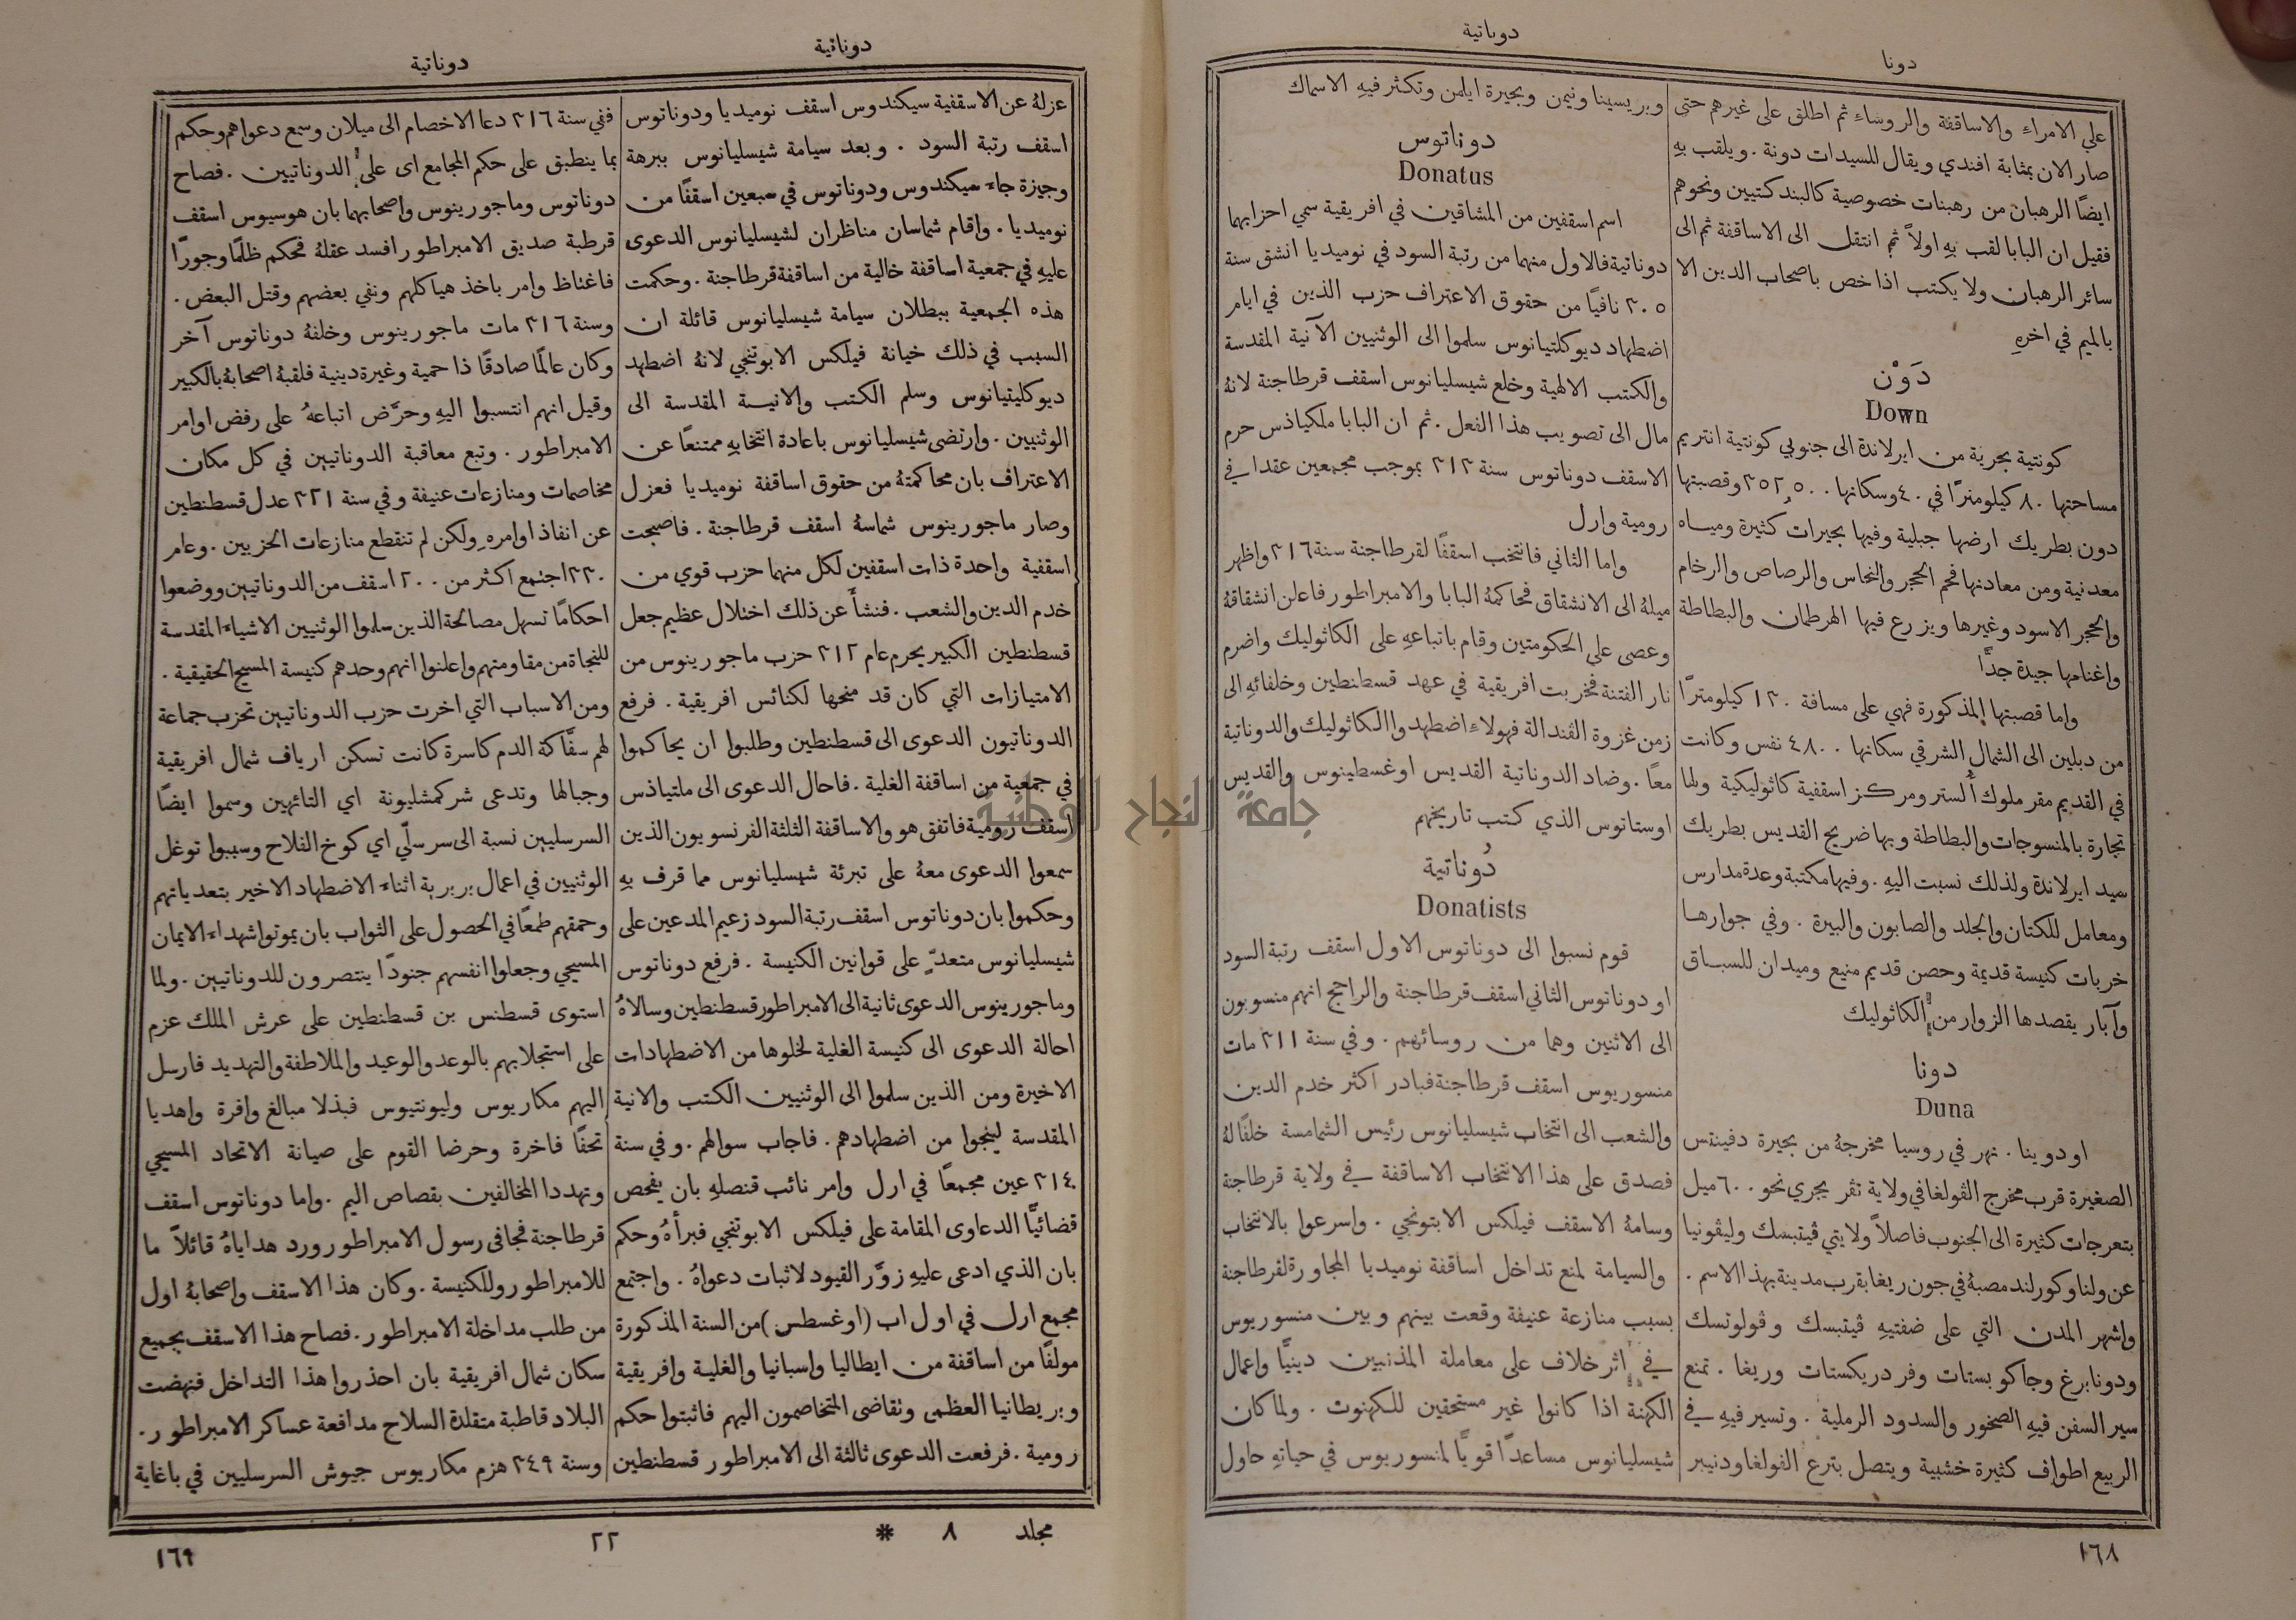 دونا
دوناتية
علي الامراء والاساقفة والروساء ثم اطلق على غيرهم حتى
صار الان بمثابة افندي ويقال للسيدات دونة . ويلقب بهِ
ايضًا الرهبان من رهبنات خصوصية كالبندكتيين ونحوهم
فقيل ان البابا لقب بهِ اولاً ثم انتقل الى الاساقفة ثم الى
سائر الرهبان ولا يكتب اذا خص باصحاب الدين الا
بالميم في اخرهِ
دَوْن
Down
كونتية بحرية من ايرلاندة الى جنوبي كونتية انتريم
مساحتها ٨٠ كيلومترًا في ٤٠ وسكانها ٣٥٢,٥٠٠ وقصبتها
دون بطريك ارضها جبلية وفيها بحيرات كثيرة ومياه
معدنية ومن معادنها فحم الحجر والنحاس والرصاص والرخام
والحجر الاسود وغيرها ويزرع فيها الهرطمان والبطاطة
واغنامها جيدة جدًّا
واما قصبتها المذكورة فهي على مسافة ١٣٠ كيلومترًا
من دبلين الى الشمال الشرقي سكانها ٤٨٠٠ نفس وكانت
في القديم مقر ملوك أُلستر ومركز اسقفية كاثوليكية ولها
تجارة بالمنسوجات والبطاطة وبها ضريح القديس بطريك
سيد ايرلاندة ولذلك نسبت اليهِ . وفيها مكتبة وعدة مدارس
ومعامل للكتان والجلد والصابون والبيرة . وفي جوارها
خربات كنيسة قديمة وحصن قديم منيع وميدان للسباق
وآبار يقصدها الزوار من الكاثوليك
دونا
Duna
او دوينا . نهر في روسيا مخرجهُ من بحيرة دفينتس
الصغيرة قرب مخرج الڤولغا في ولاية تڤر يجري نحو ٦٠٠ ميل
بتعرجات كثيرة الى الجنوب فاصلاً ولايتي ڤيتبسك وليڤونيا
عن ولنا وكورلند مصبهُ في جون ريغا بقرب مدينة بهذا الاسم .
واشهر المدن التي على ضفتيهِ ڤيتبسك وڤولوتسك
ودونابرغ وجاكوبستات وفردريكستات وريغا . تمنع
سير السفن فيهِ الصخور والسدود الرملية . وتسير فيهِ في
الربيع اطواف كثيرة خشبية ويتصل بترع الڤولغا ودنيبر
وبريسينا ونيمن وبحيرة ايلمن وتكثر فيهِ الاسماك
دوناتوس
Donatus
اسم اسقفين من المشاقين في افريقية سمي احزابهما
دوناتية فالاول منهما من رتبة السود في نوميديا انشق سنة
٣٠٥ نافيًا من حقوق الاعتراف حزب الذين في ايام
اضطهاد ديوكلتيانوس سلموا الى الوثنيين الآنية المقدسة
والكتب الالهية وخلع شيسليانوس اسقف قرطاجنة لانهُ
مال الى تصويب هذا الفعل . ثم ان البابا ملكياذس حرم
الاسقف دوناتوس سنة ٣١٣ بموجب مجمعين عقدا في
رومية وارل
واما الثاني فانتخب اسقفًا لقرطاجنة سنة ٣١٦ واظهر
ميلهُ الى الانشقاق فحاكمهُ البابا والامبراطور فاعلن انشقاقهُ
وعصى على الحكومتين وقام باتباعهِ على الكاثوليك واضرم
نار الفتنة فخربت افريقية في عهد قسطنطين وخلفائهِ الى
زمن غزوة الڤندالة فهولاء اضطهدوا الكاثوليك والدوناتية
معًا . وضاد الدوناتية القديس اوغسطينوس والقديس
اوستاتوس الذي كتب تاريخهم
دُوناتية
Donatists
قوم نسبوا الى دوناتوس الاول اسقف رتبة السود
او دوناتوس الثاني اسقف قرطاجنة والراجح انهم منسوبون
الى الاثنين وهما من روسائهم . وفي سنة ٣١١ مات
منسوريوس اسقف قرطاجنة فبادر اكثر خدم الدين
والشعب الى انتخاب شيسليانوس رئيس الشمامسة خلفًا لهُ
فصدق على هذا الانتخاب الاساقفة في ولاية قرطاجنة
وسامهُ الاسقف فيلكس الابتونجي . واسرعوا بالانتخاب
والسيامة لمنع تداخل اساقفة نوميديا المجاورة لقرطاجنة
بسبب منازعة عنيفة وقعت بينهم وبين منسوريوس
في اثر خلاف على معاملة المذنبين دينيًّا واعمال
الكهنة اذا كانوا غير مستحقين للكهنوت . ولما كان
شيسليانوس مساعدًا قويًّا لمنسوريوس في حياتهِ حاول
١٦٨
دوناتية
دوناتية
عزلهُ عن الاسقفية سيكندوس اسقف نوميديا ودوناتوس
اسقف رتبة السود . وبعد سيامة شيسليانوس ببرهة
وجيزة جاء سيكندوس ودوناتوس في سبعين اسقفًا من
نوميديا . واقام شماسان مناظران لشيسليانوس الدعوى
عليهِ في جمعية اساقفة خالية من اساقفة قرطاجنة . وحكمت
هذه الجمعية ببطلان سيامة شيسليانوس قائلة ان
السبب في ذلك خيانة فيلكس الابوتنجي لانهُ اضطهد
ديوكليتيانوس وسلم الكتب والانية المقدسة الى
الوثنيين . وارتضى شيسليانوس باعادة انتخابهِ ممتنعًا عن
الاعتراف بان محاكمتهُ من حقوق اساقفة نوميديا فعزل
وصار ماجورينوس شماسهُ اسقف قرطاجنة . فاصبحت
اسقفية واحدة ذات اسقفين لكل منهما حزب قوي من
خدم الدين والشعب . فنشأَ عن ذلك اختلال عظيم جعل
قسطنطين الكبير يحرم عام ٣١٢ حزب ماجورينوس من
الامتيازات التي كان قد منحها لكنائس افريقية . فرفع
الدوناتيون الدعوى الى قسطنطين وطلبوا ان يحاكموا
في جمعية من اساقفة الغلية . فاحال الدعوى الى ملتياذس
اسقف رومية فاتفق هو والاساقفة الثلثة الفرنسويون الذين
سمعوا الدعوى معهُ على تبرئة شيسليانوس مما قرف بهِ
وحكموا بان دوناتوس اسقف رتبة السود زعيم المدعين على
شيسليانوس متعدٍّ على قوانين الكنيسة . فرفع دوناتوس
وماجورينوس الدعوى ثانية الى الامبراطور قسطنطين وسالاهُ
احالة الدعوى الى كنيسة الغلية لخلوها من الاضطهادات
الاخيرة ومن الذين سلموا الى الوثنيين الكتب والانية
المقدسة لينجوا من اضطهادهم . فاجاب سوالهم . وفي سنة
٣١٤ عين مجمعًا في ارل وامر نائب قنصلهِ بان يفحص
قضائيًّا الدعاوى المقامة على فيلكس الابوتنجي فبرأهُ وحكم
بان الذي ادعى عليهِ زوَّر القيود لاثبات دعواهُ . واجتمع
مجمع ارل في اول اب (اوغسطس) من السنة المذكورة
مولفًا من اساقفة من ايطاليا واسبانيا والغلية وافريقية
وبريطانيا العظمى وتقاضى المتخاصمون اليهم فاثبتوا حكم
رومية . فرفعت الدعوى ثالثة الى الامبراطور قسطنطين
ففي سنة ٣١٦ دعا الاخصام الى ميلان وسمع دعواهم وحكم
بما ينطبق على حكم المجامع اى على الدوناتيين . فصاح
دوناتوس وماجورينوس واصحابهما بان هوسيوس اسقف
قرطبة صديق الامبراطور افسد عقلهُ فحكم ظلمًا وجورًا
فاغتاظ وامر باخذ هياكلهم ونفي بعضهم وقتل البعض .
وسنة ٣١٦ مات ماجورينوس وخلفهُ دوناتوس آخر
وكان عالمًا صادقًا ذا حمية وغيرة دينية فلقبهُ اصحابهُ بالكبير
وقيل انهم انتسبوا اليهِ وحرَّض اتباعهُ على رفض اوامر
الامبراطور . وتبع معاقبة الدوناتيين في كل مكان
مخاصمات ومنازعات عنيفة وفي سنة ٣٢١ عدل قسطنطين
عن انفاذ اوامرهِ ولكن لم تنقطع منازعات الحزبين . وعام
٣٣٠ اجتمع اكثر من ٢٠٠ اسقف من الدوناتيين ووضعوا
احكامًا تسهل مصالحة الذين سلموا الوثنيين الاشياء المقدسة
للنجاة من مقاومتهم واعلنوا انهم وحدهم كنيسة المسيح الحقيقية .
ومن الاسباب التي اخرت حزب الدوناتيين تحزب جماعة
لهم سفَّاكة الدم كاسرة كانت تسكن ارياف شمال افريقية
وجبالها وتدعى شركمشليونة اي التائهين وسموا ايضًا
السرسليين نسبة الى سرسلّي اي كوخ الفلاح وسببوا توغل
الوثنيين في اعمال بربرية اثناء الاضطهاد الاخير بتعدياتهم
وحمقهم طمعًا في الحصول على الثواب بان يموتوا شهداء الايمان
المسيحي وجعلوا انفسهم جنودًا ينتصرون للدوناتيين . ولما
استوى قسطنس بن قسطنطين على عرش الملك عزم
على استجلابهم بالوعد والوعيد والملاطفة والتهديد فارسل
اليهم مكاريوس وليونتيوس فبذلا مبالغ وافرة واهديا
تحفًا فاخرة وحرضا القوم على صيانة الاتحاد المسيحي
وتهددا المخالفين بقصاص اليم . واما دوناتوس اسقف
قرطاجنة فجافى رسول الامبراطور ورد هداياهُ قائلاً ما
للامبراطور وللكنيسة . وكان هذا الاسقف واصحابهُ اول
من طلب مداخلة الامبراطور . فصاح هذا الاسقف بجميع
سكان شمال افريقية بان احذروا هذا التداخل فنهضت
البلاد قاطبة متقلدة السلاح مدافعة عساكر الامبراطور .
وسنة ٣٤٩ هزم مكاريوس جيوش السرسليين في باغاية
مجلد ٨ * ٢٢
١٦٩
جامعة النجاح الوطنية